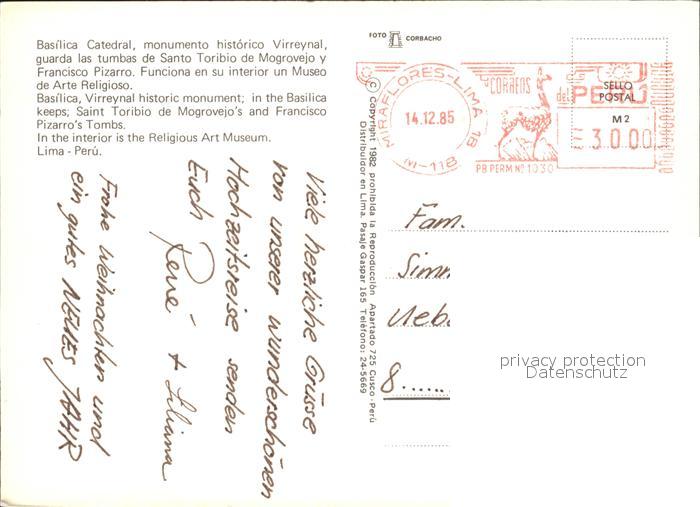 Basílica Catedral, monumento histórico Virreynal,
guarda las tumbas de Santo Toribio de Mogrovejo y
Francisco Pizarro. Funciona en su interior un Museo
de Arte Religioso.
Basílica, Virreynal historic monument; in the Basilica
keeps; Saint Toribio de Mogrovejo's and Francisco
Pizarro's Tombs.
In the interior is the Religious Art Museum.
Lima - Perú.
Viele herzliche Grüsse
von unserer wunderschönen
Hochzeitsreise senden
Euch
René + Liliana
Frohe Weihnachten und
ein gutes NEUES JAHR
FOTO CORBACHO
© Copyright 1982 prohibida la Reproducción Apartado 725 Cusco - Perú
Distribuidor en Lima. Pasaje Gaspar 165 Teléfono: 24-5669
MIRAFLORES-LIMA 18
14.12.85
M-118
CORREOS
del PERU
PB PERM Nº 1030
SELLO
POSTAL
M2
3.000
Fam.
Simm
Ueb.
8......
privacy protection
Datenschutz